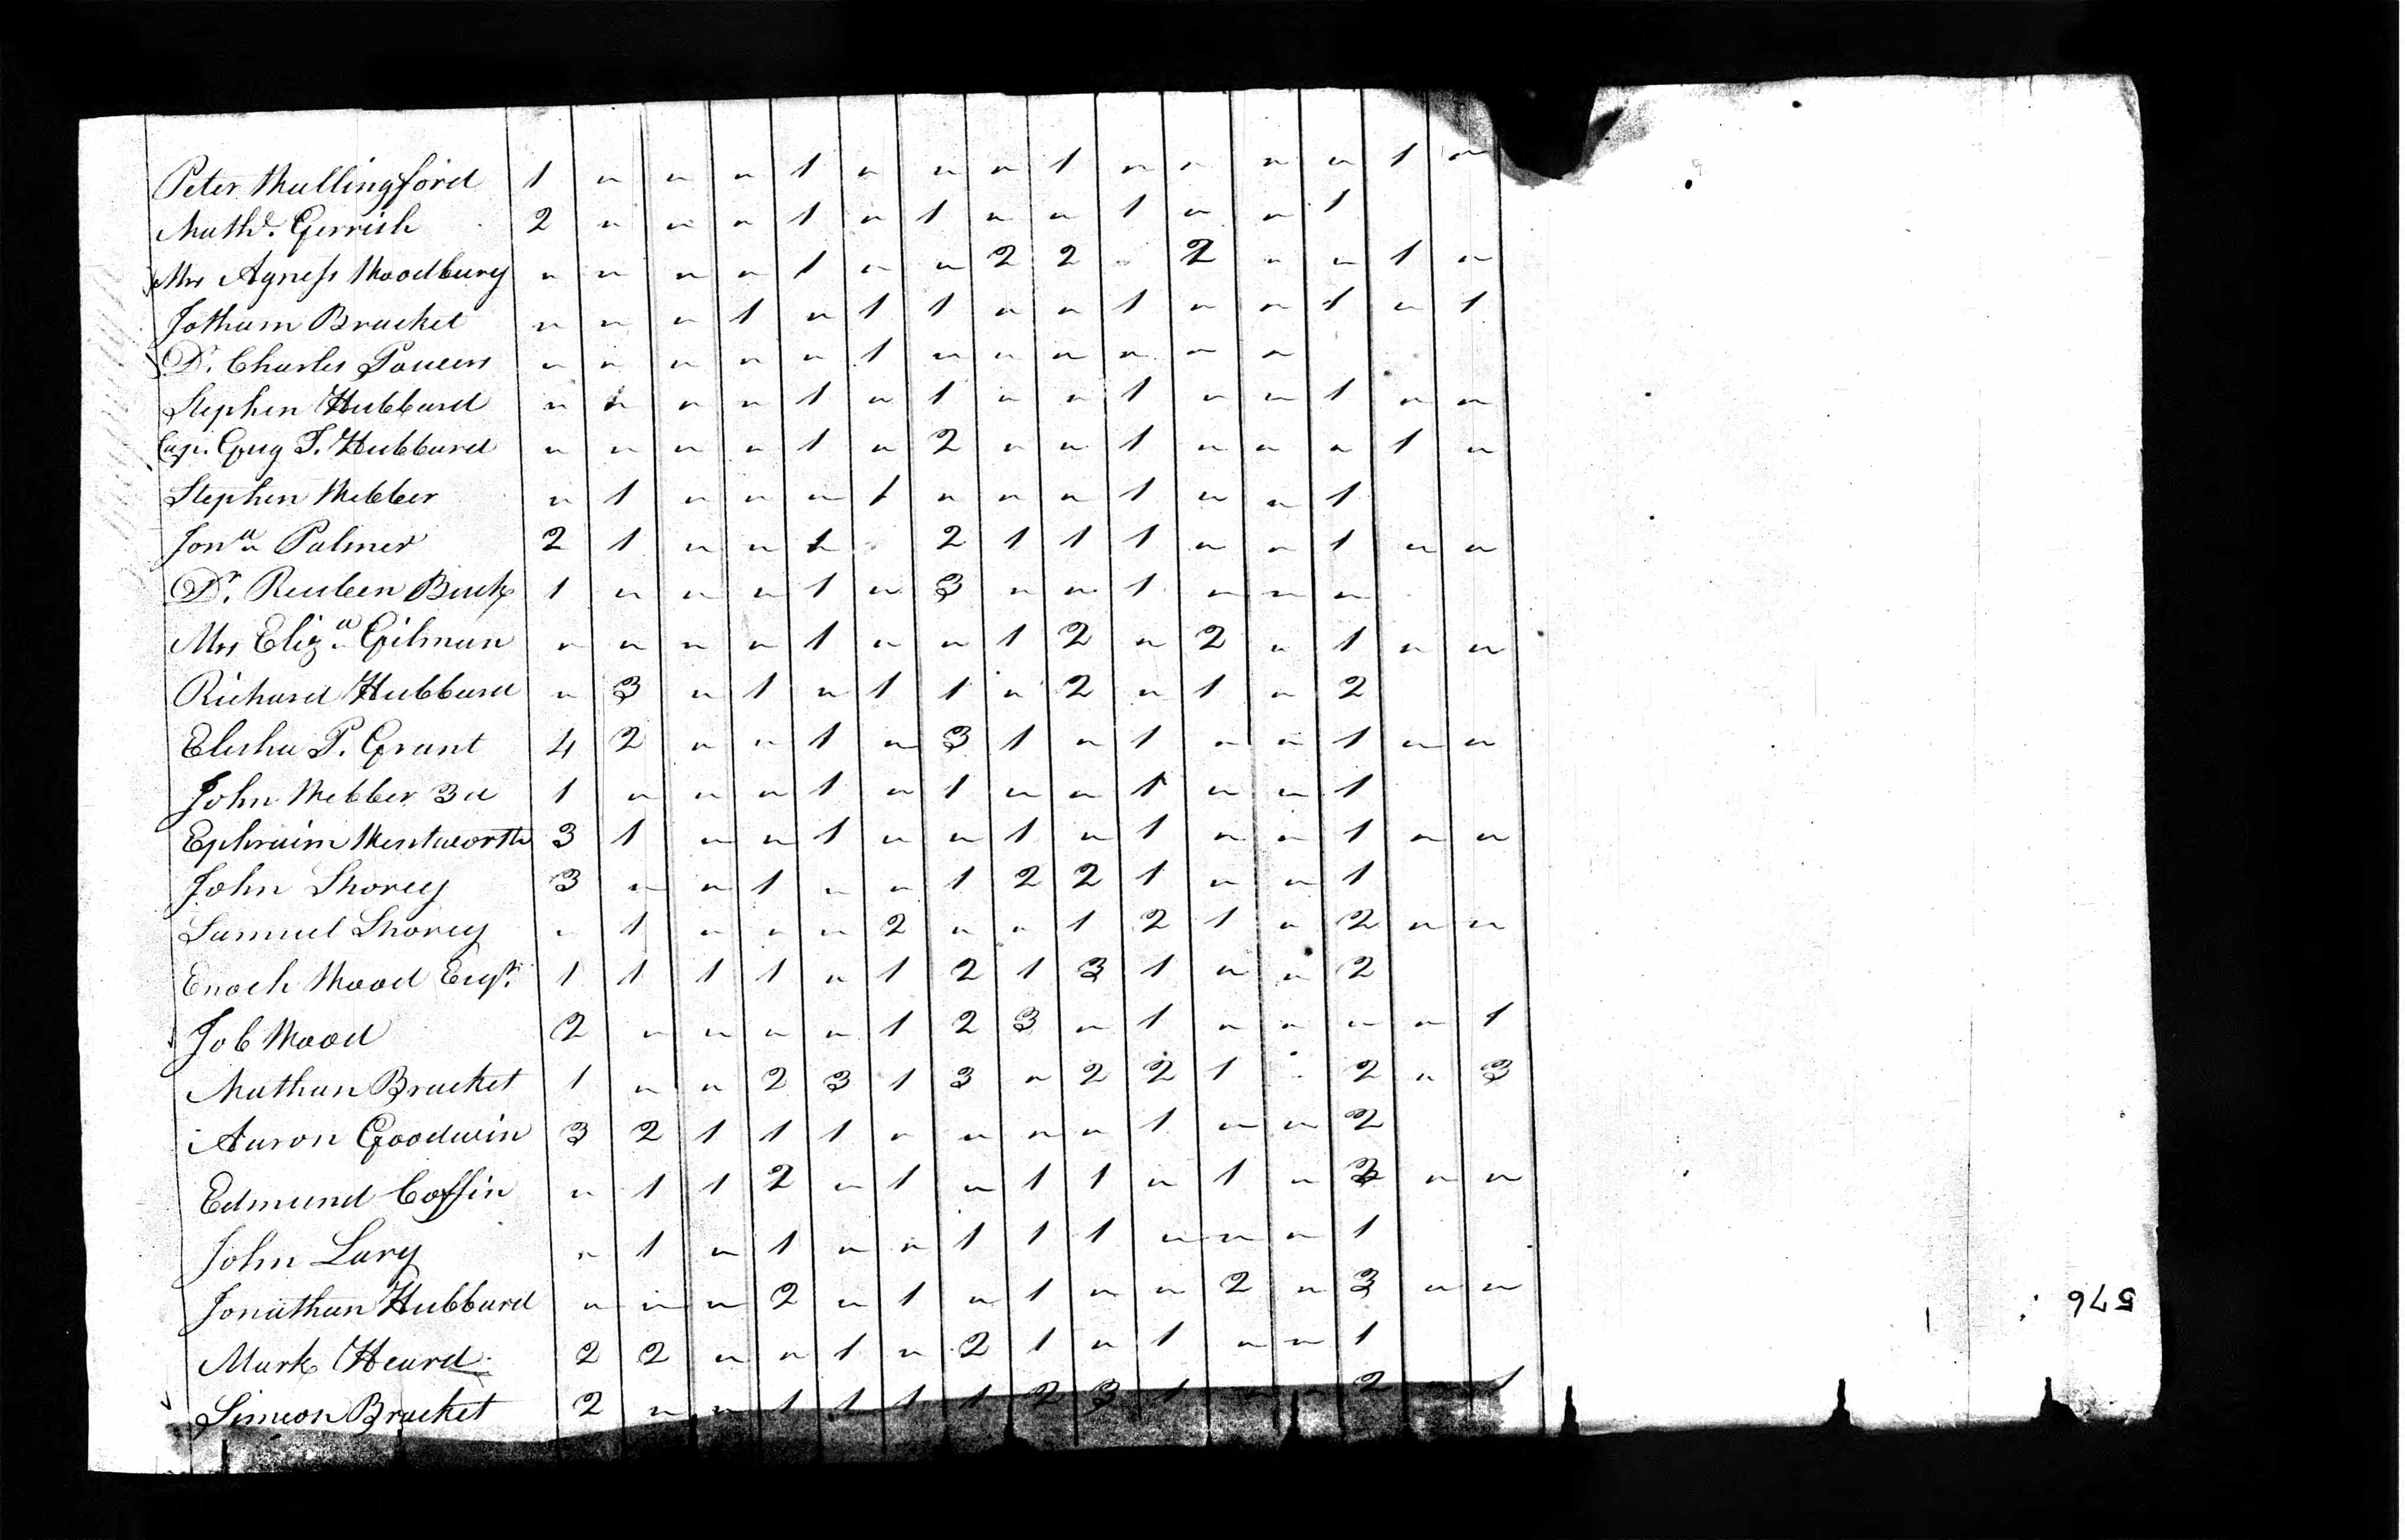 Peter Wallingford 1 " " " 1 " " " 1 " " " " 1 "
Nathl. Gerrish 2 " " " 1 " 1 " " 1 " " 1
Mrs Agness Woodbury " " " " 1 " " 2 2 2 " " 1 "
Jotham Bracket " " " 1 " 1 1 " " 1 " " 1 " 1
Dr. Charles Powers " " " " " 1 " " " " " "
Stephen Hubbard " " " " 1 " 1 " " 1 " " 1 " "
Cap. Guy T. Hubbard " " " " 1 " 2 " " 1 " " " 1 "
Stephen Webber " 1 " " " 1 " " " 1 " " 1
Jona. Palmer 2 1 " " 1 2 1 1 1 " " 1 " "
Dr. Reuben Buck 1 " " " 1 " 3 " " 1 " " "
Mrs Eliza. Gilman " " " " 1 " " 1 2 " 2 " 1 " "
Richard Hubbard " 3 " 1 " 1 1 " 2 " 1 " 2
Elisha P. Grant 4 2 " " 1 " 3 1 " 1 " " 1 " "
John Webber 3d 1 " " " 1 " 1 " " 1 " " 1
Ephraim Wentworth 3 1 " " 1 " " 1 " 1 " " 1 " "
John Shorey 3 " " 1 " " 1 2 2 1 " " 1
Samuel Shorey " 1 " " " 2 " " 1 2 1 " 2 " "
Enoch Wood Esqr. 1 1 1 1 " 1 2 1 3 1 " " 2
Job Wood 2 " " " " 1 2 3 " 1 " " " " 1
Nathan Bracket 1 " " 2 3 1 3 " 2 2 1 " 2 " 3
Aaron Goodwin 3 2 1 1 1 " " " " 1 " " 2
Edmund Coffin " 1 1 2 " 1 " 1 1 " 1 " " "
John Lary " 1 " 1 " " 1 1 1 " " " 1
Jonathan Hubbard " " " 2 " 1 " 1 " " 2 " 3 " "
Mark Heard 2 2 " " 1 " 2 1 " 1 " " 1
Simeon Bracket 2 " " 1 1 1 1 2 3 1 " " 2 " 1
576